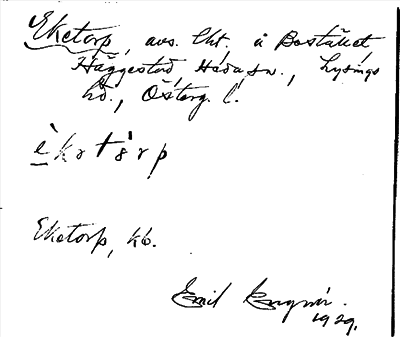 Eketorp, avs. lht. å Bostället,
Häggestad, Häda sn., Lysings
hd., Österg. l.
è k ɤ t s ɤ p
Eketorp, kb.
Emil
1929.